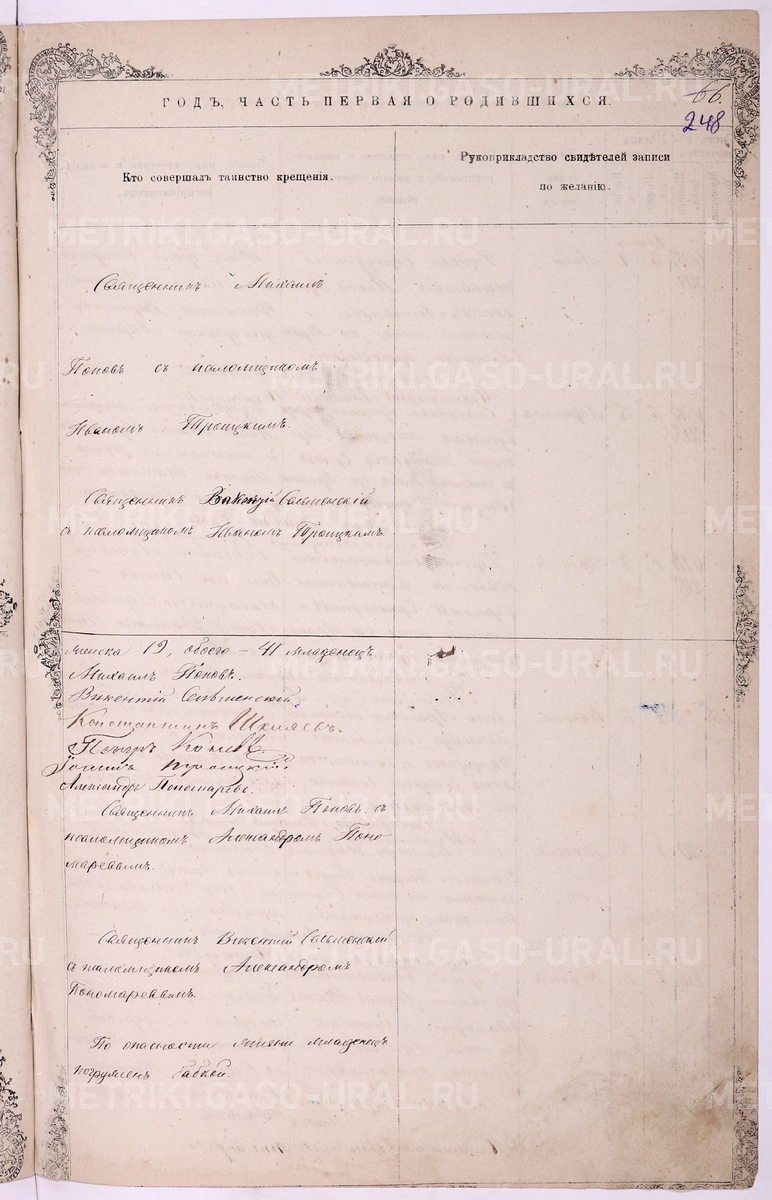 66.
248
ГОДЪ, ЧАСТЬ ПЕРВАЯ О РОДИВШИХСЯ.
Кто совершалъ таинство крещенія.
Рукоприкладство свидѣтелей записи
по желанію.
Священникъ Михаилъ
Поповъ съ псаломщикомъ
Иваномъ Троицкимъ.
Священникъ Викентій Сельменскій
съ псаломщикомъ Иваномъ Троицкимъ.
19, обоего – 41 младенецъ.
Михаилъ Поповъ.
Викентій Сельменскій.
Константинъ
Петръ
Троицкій.
Александръ Пономаревъ.
Священникъ Михаилъ Поповъ съ
псаломщикомъ Александромъ Поно-
маревымъ.
Священникъ Викентій Сельменскій
съ псаломщикомъ Александромъ
Пономаревымъ.
По опасности жизни младенецъ
погруженъ бабкой.
METRIKI.GASO-URAL.RU